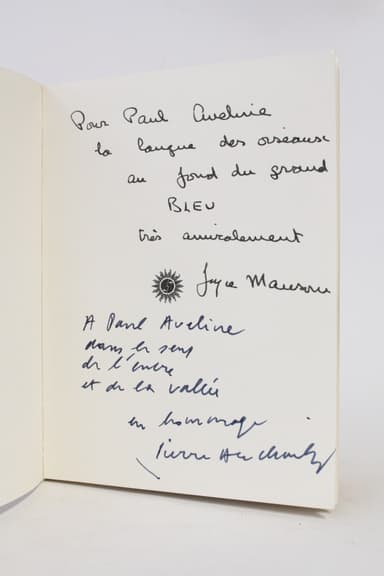 Pour Paul Aveline
la langue des oiseaux
au fond du grand
BLEU
très amicalement
Joyce Mansour
A Paul Aveline
dans le sens
de l'encre
et de la vallée
en hommage
Pierre Alechinsky